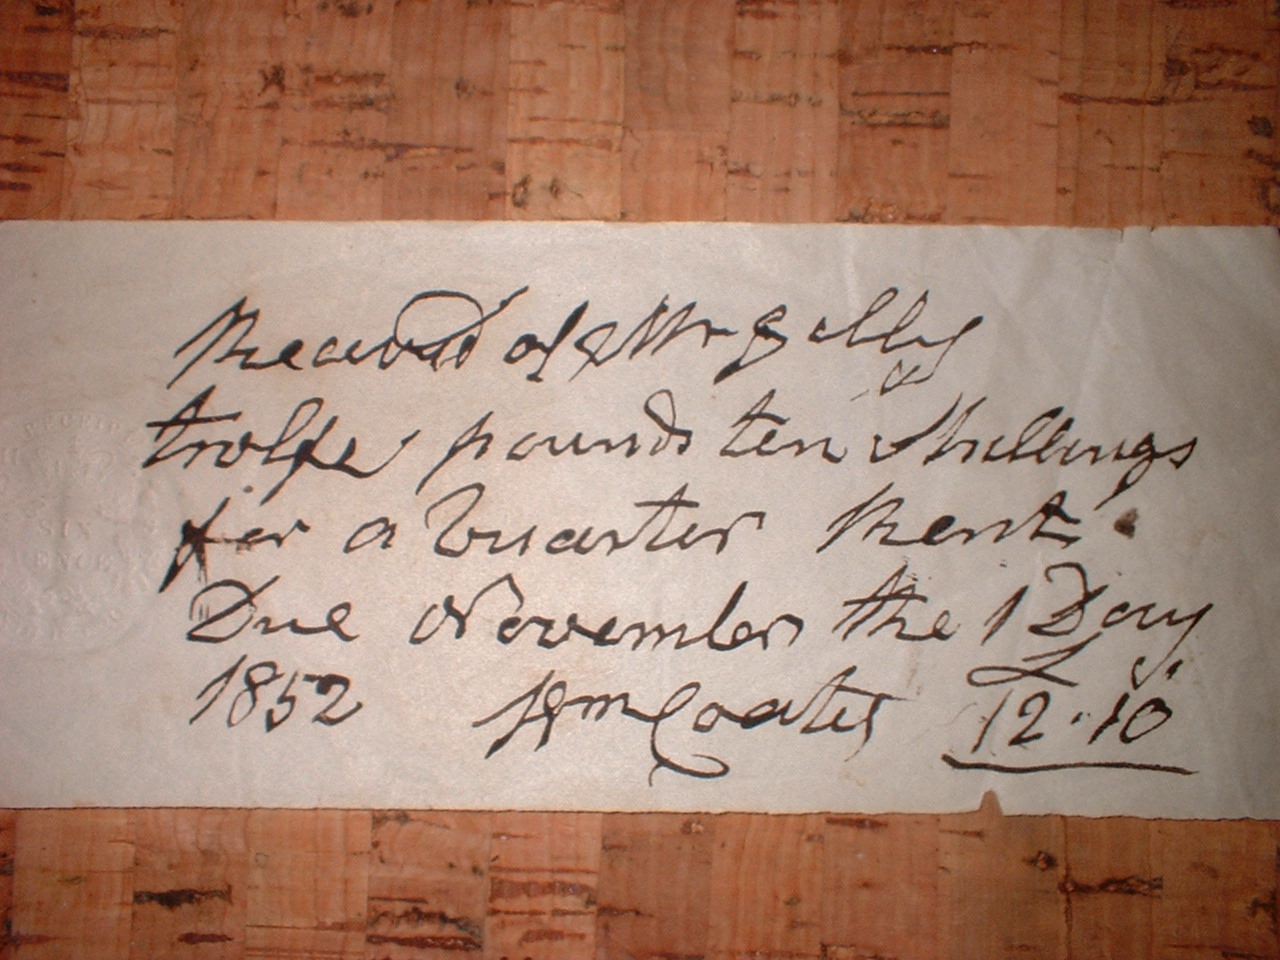 Received of Mr Gelly
twolfe pounds ten Shillings
for a Quarter Rent
Due November the 1 Day
1852 Wm Coates £ s. 12.10
RECEIPT
SIX
PENCE